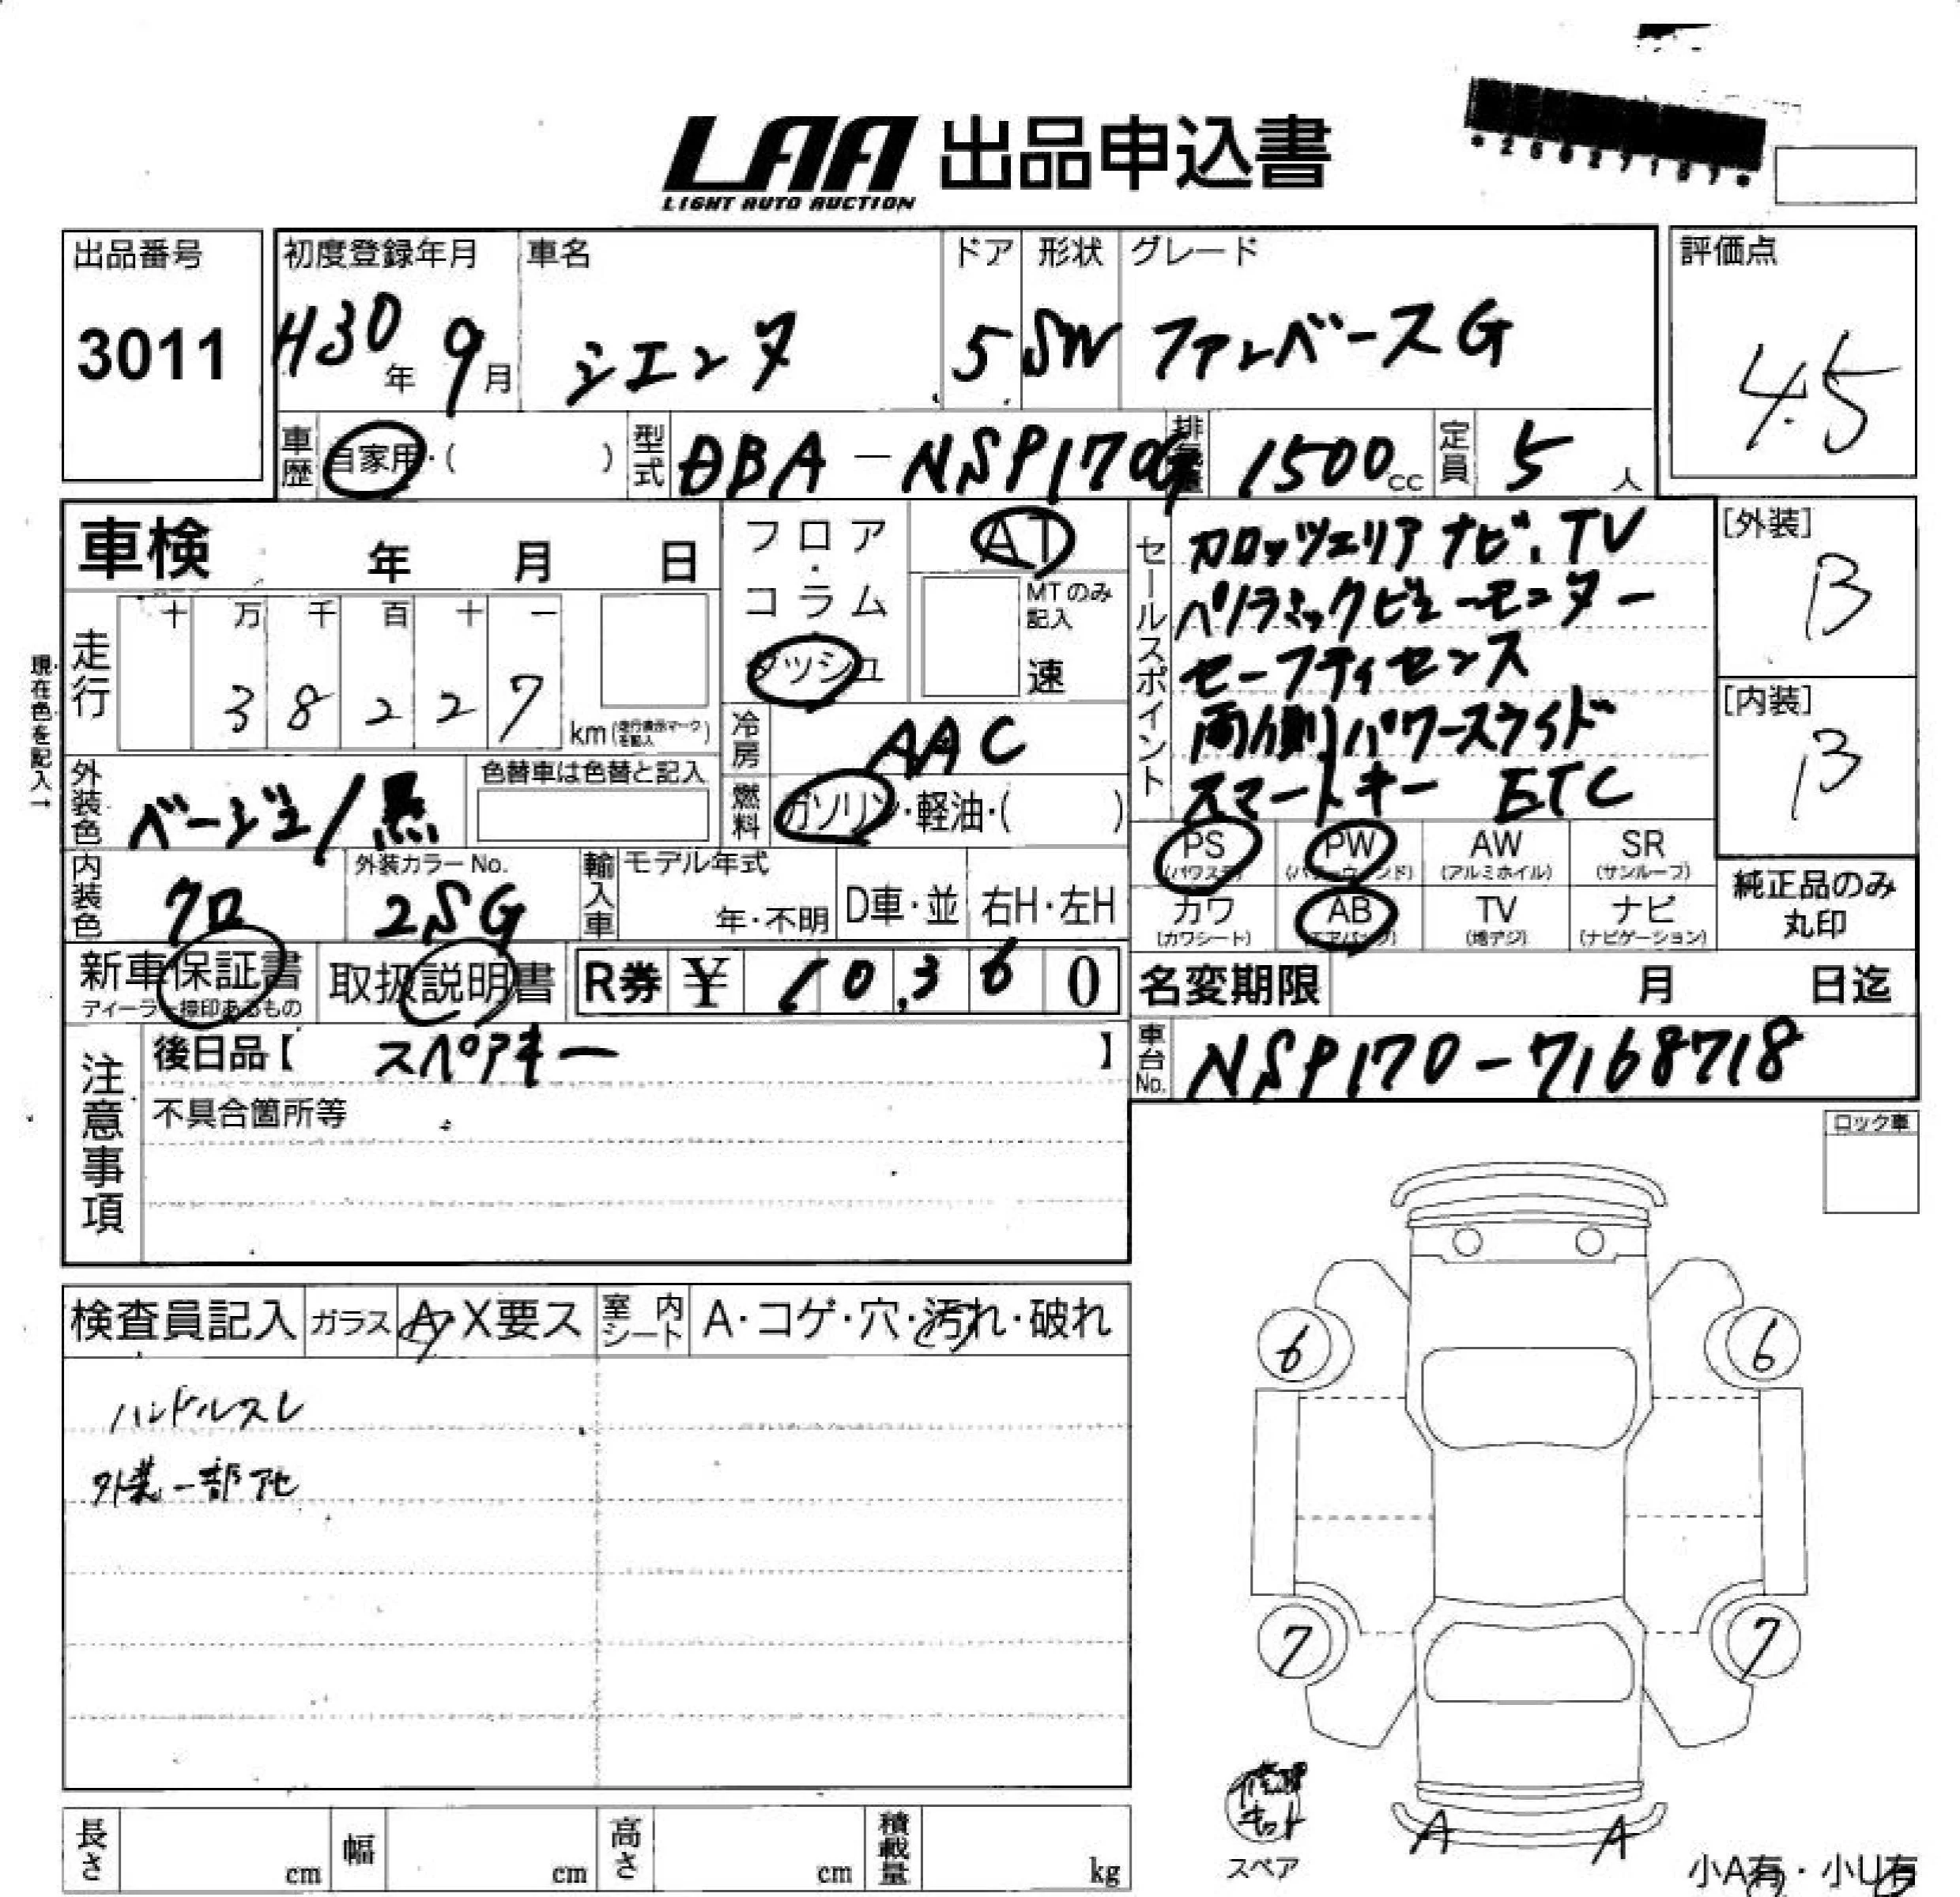 LAA 出品申込書
LIGHT AUTO AUCTION
出品番号
3011
初度登録年月
H30年 9月
車名
シエンタ
ドア
5
形状
SW
グレード
ファンベースG
評価点
4.5
車歴 自家用・( )
型式 DBA-NSP170G
排気量 1500cc
定員 5人
車検 年 月 日
フロア・コラム
ダッシュ
AT
MTのみ記入
速
セールスポイント
カロッツェリアナビ、TV
パノラミックビューモニター
セーフティセンス
両側パワースライド
スマートキー ETC
[外装]
B
[内装]
B
現在色を記入→
走行
十 万 千 百 十 一
3 8 2 2 7
km(走行表示マークを記入)
冷房 AAC
外装色 ベージュ/黒
色替車は色替と記入
燃料 ガソリン・軽油・( )
PS (パワステ)
PW (パワーウィンド)
AW (アルミホイル)
SR (サンルーフ)
カワ (カワシート)
AB (エアバッグ)
TV (地デジ)
ナビ (ナビゲーション)
純正品のみ丸印
内装色 クロ
外装カラーNo.
2SG
輸入車
モデル年式
年・不明
D車・並
右H・左H
新車保証書
ディーラー捺印あるもの
取扱説明書
R券 ¥ 10,360
名変期限 月 日迄
車台No. NSP170-7168718
注意事項
後日品【 スペアキー 】
不具合箇所等
ロック車
検査員記入
ガラス A・X要ス
室内シート A・コゲ・穴・汚れ・破れ
ハンドルスレ
外装一部アセ
6 6
7 7
キット
スペア
A A
小A有・小U有
長さ cm
幅 cm
高さ cm
積載量 kg